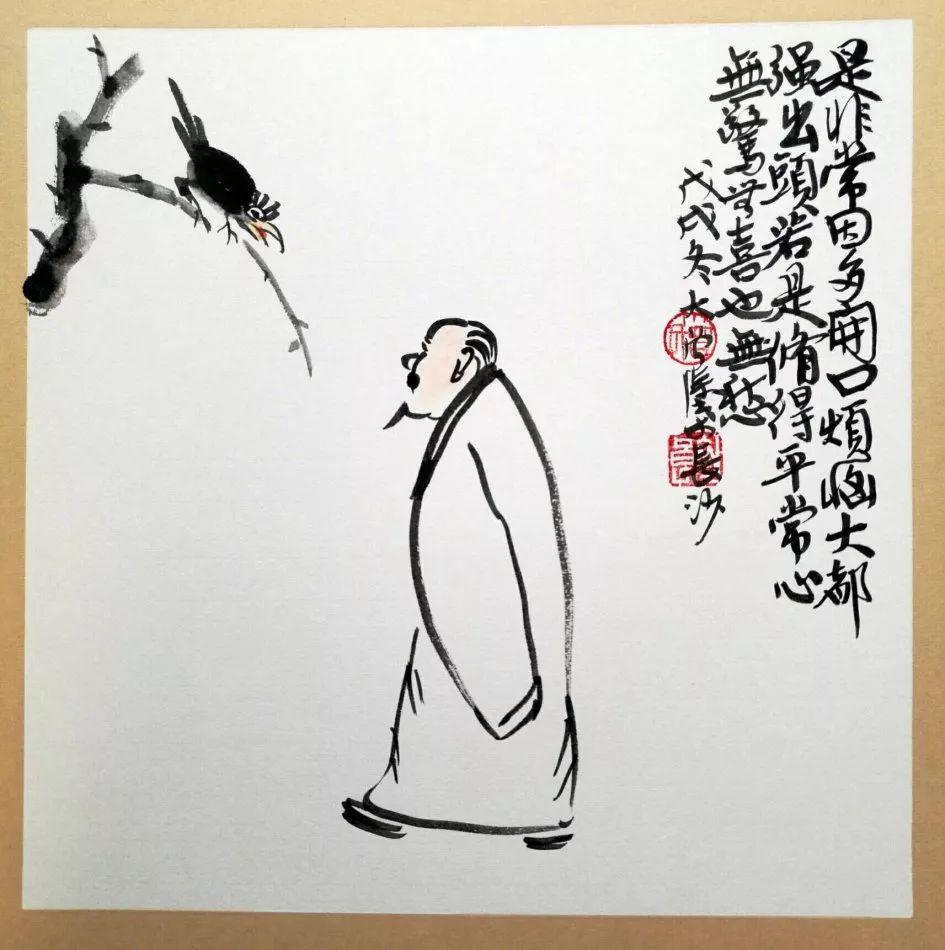 是非常因多開口煩惱大都
强出頭若是脩得平常心
無驚無喜也無愁
戊戌冬大長沙